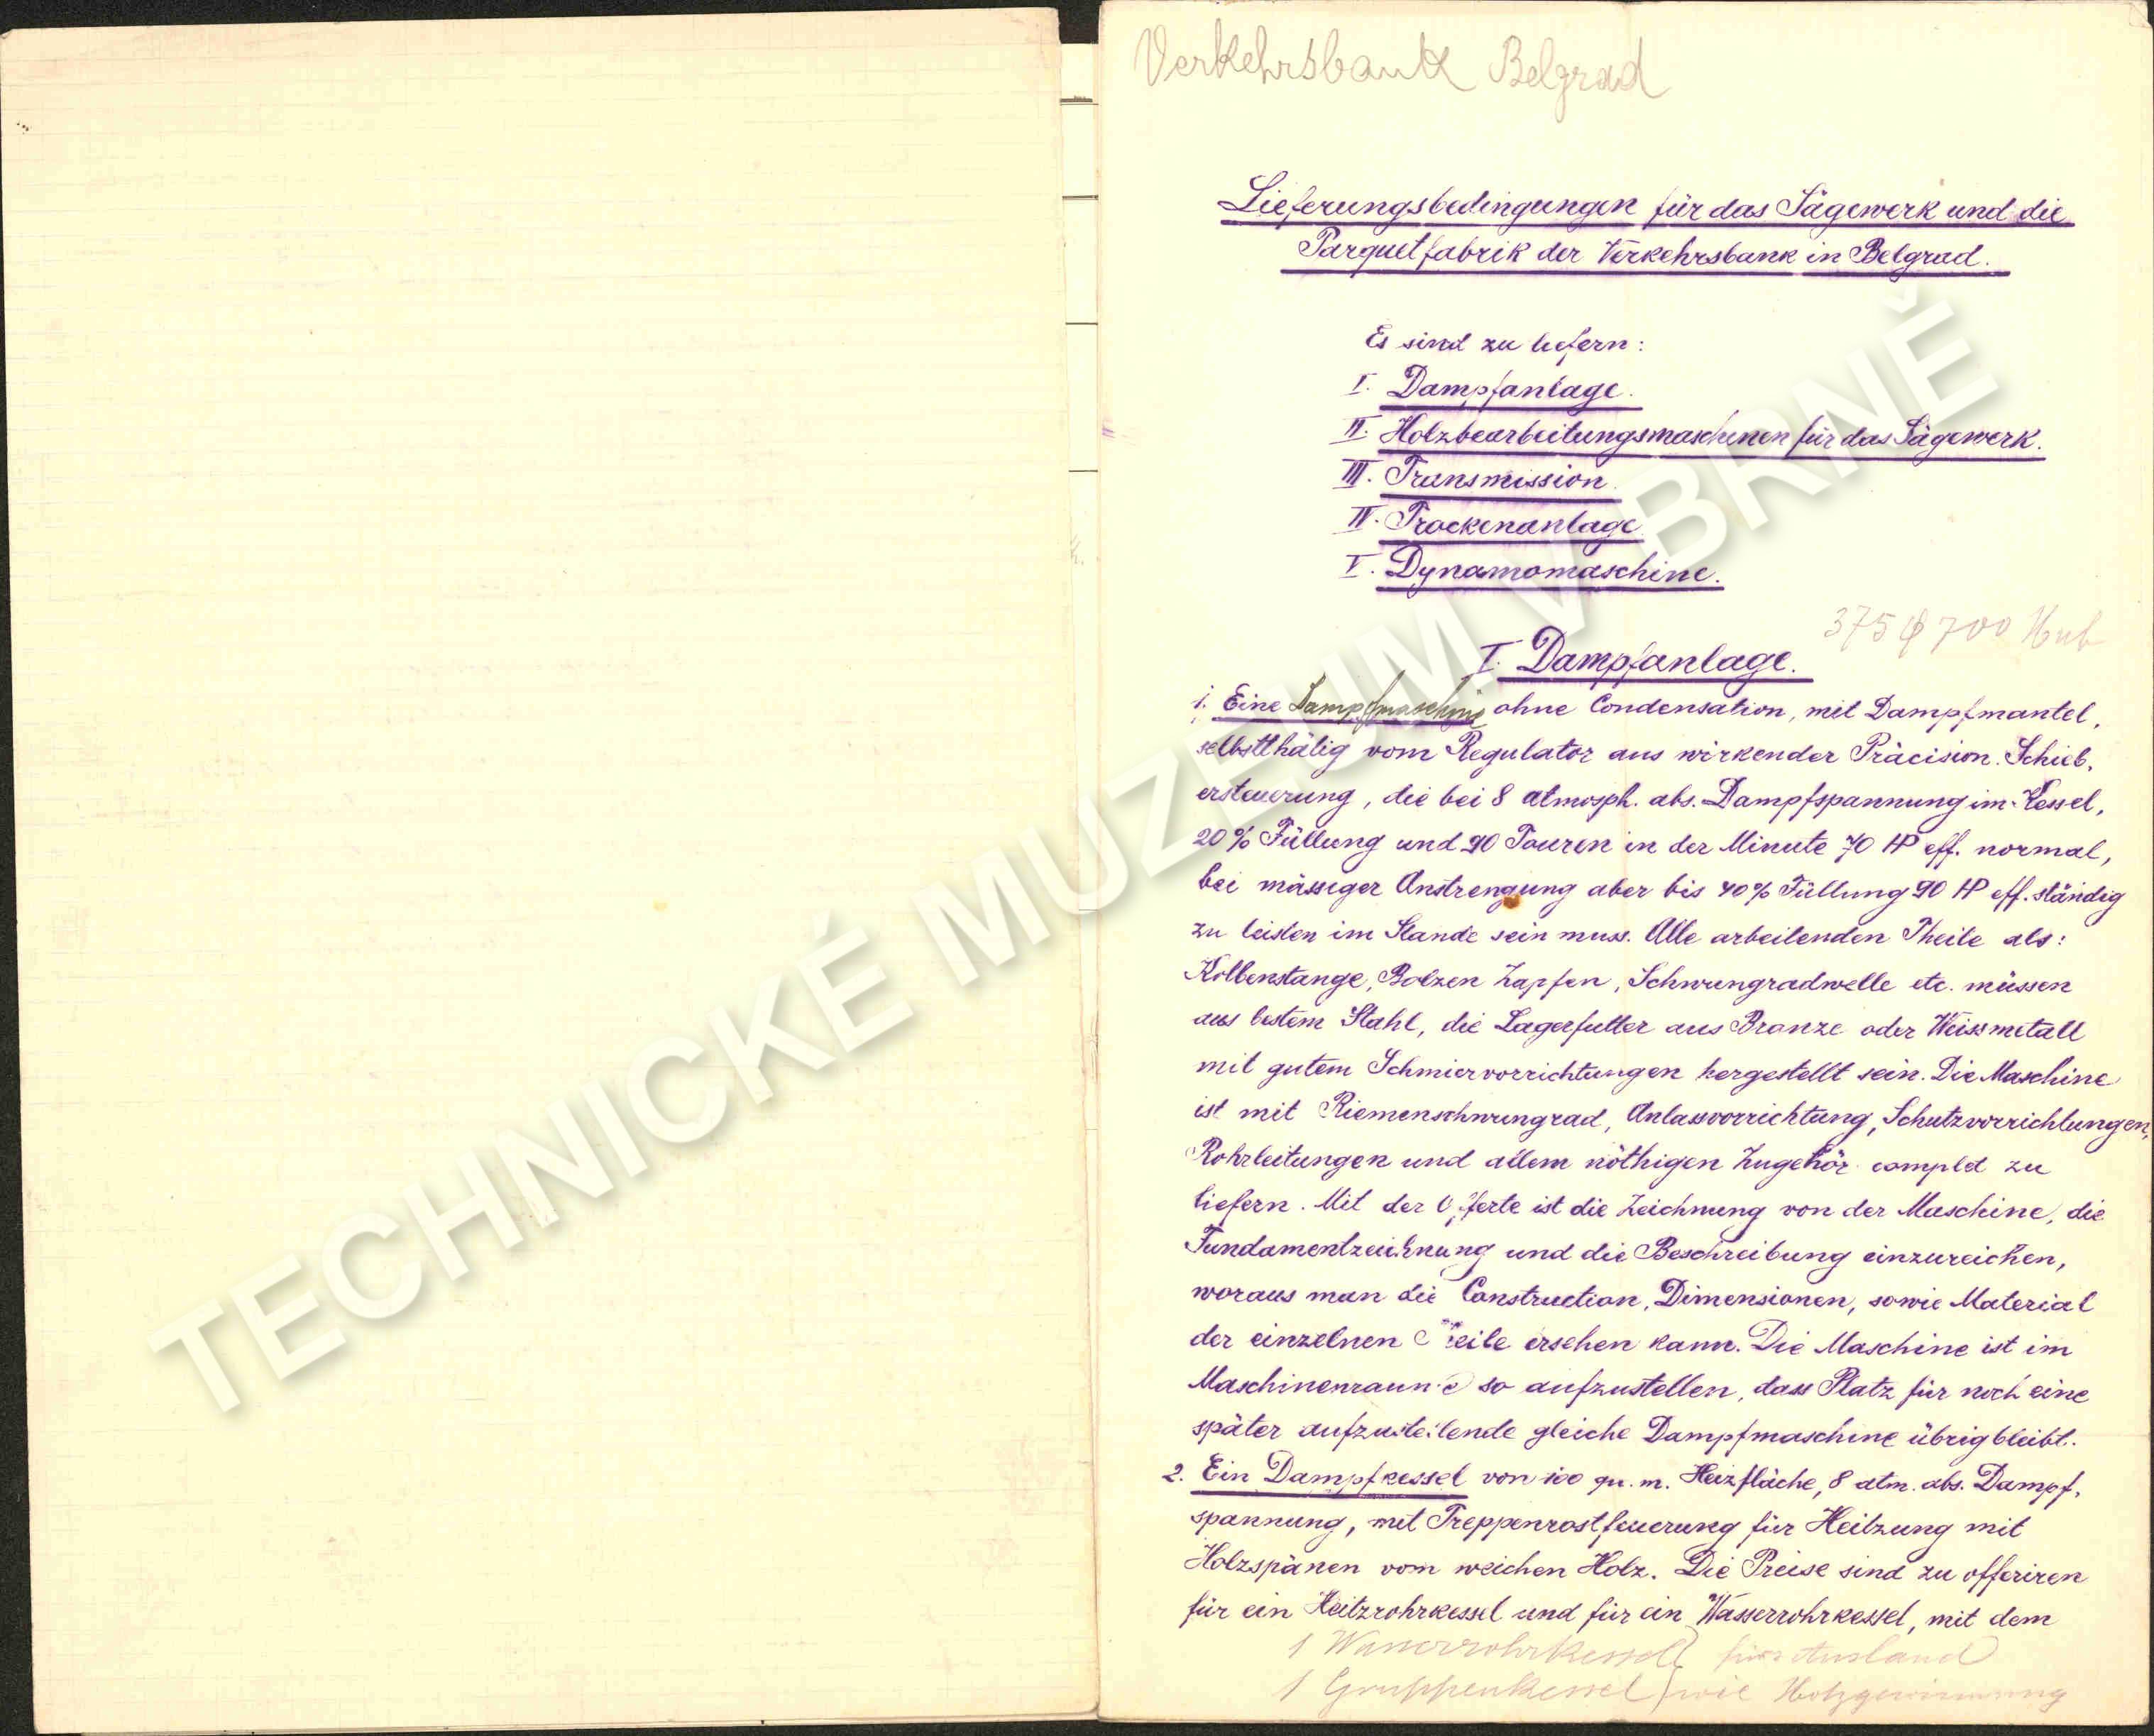 Verkehrsbank Belgrad
Lieferungsbedingungen für das Sägewerk und die
Parquetfabrik der Verkehrsbank in Belgrad.
Es sind zu liefern:
I. Dampfanlage.
II. Holzbearbeitungsmaschinen für das Sägewerk.
III. Transmission.
IV. Trockenanlage
V. Dynamomaschine.
375 φ 700 Hub
I. Dampfanlage.
1. Eine Dampfmaschine ohne Condensation, mit Dampfmantel,
selbstthätig vom Regulator aus wirkender Präcision. Schieb,
ersteuerung, die bei 8 atmosph. abs. Dampfspannung im Kessel,
20% Füllung und 90 Touren in der Minute 70 HP eff. normal,
bei mässiger Anstrengung aber bis 40% Füllung 90 HP eff. ständig
zu leisten im Stande sein muss. Alle arbeitenden Theile als:
Kolbenstange, Bolzen Zapfen, Schwungradwelle etc. müssen
aus bestem Stahl, die Lagerfutter aus Bronze oder Weissmetall
mit gutem Schmiervorrichtungen hergestellt sein. Die Maschine
ist mit Riemenschwungrad, Anlassvorrichtung, Schutzvorrichtungen,
Rohrleitungen und allem nöthigen Zugehör complet zu
liefern. Mit der Offerte ist die Zeichnung von der Maschine, die
Fundamentzeichnung und die Beschreibung einzureichen,
woraus man die Construction, Dimensionen, sowie Material
der einzelnen Theile ersehen kann. Die Maschine ist im
Maschinenraume so aufzustellen, dass Platz für noch eine
später aufzustellende gleiche Dampfmaschine übrig bleibt.
2. Ein Dampfkessel von 100 qu. m. Heizfläche, 8 atm. abs. Dampf,
spannung, mit Treppenrostfeuerung für Heitzung mit
Holzspänen vom weichen Holz. Die Preise sind zu offeriren
für ein Heitzrohrkessel und für ein Wasserrohrkessel, mit dem
1 Wasserrohrkessel } fürs Ausland
1 Gruppenkessel } wie Holzgewinnung
TECHNICKÉ MUZEUM V BRNĚ